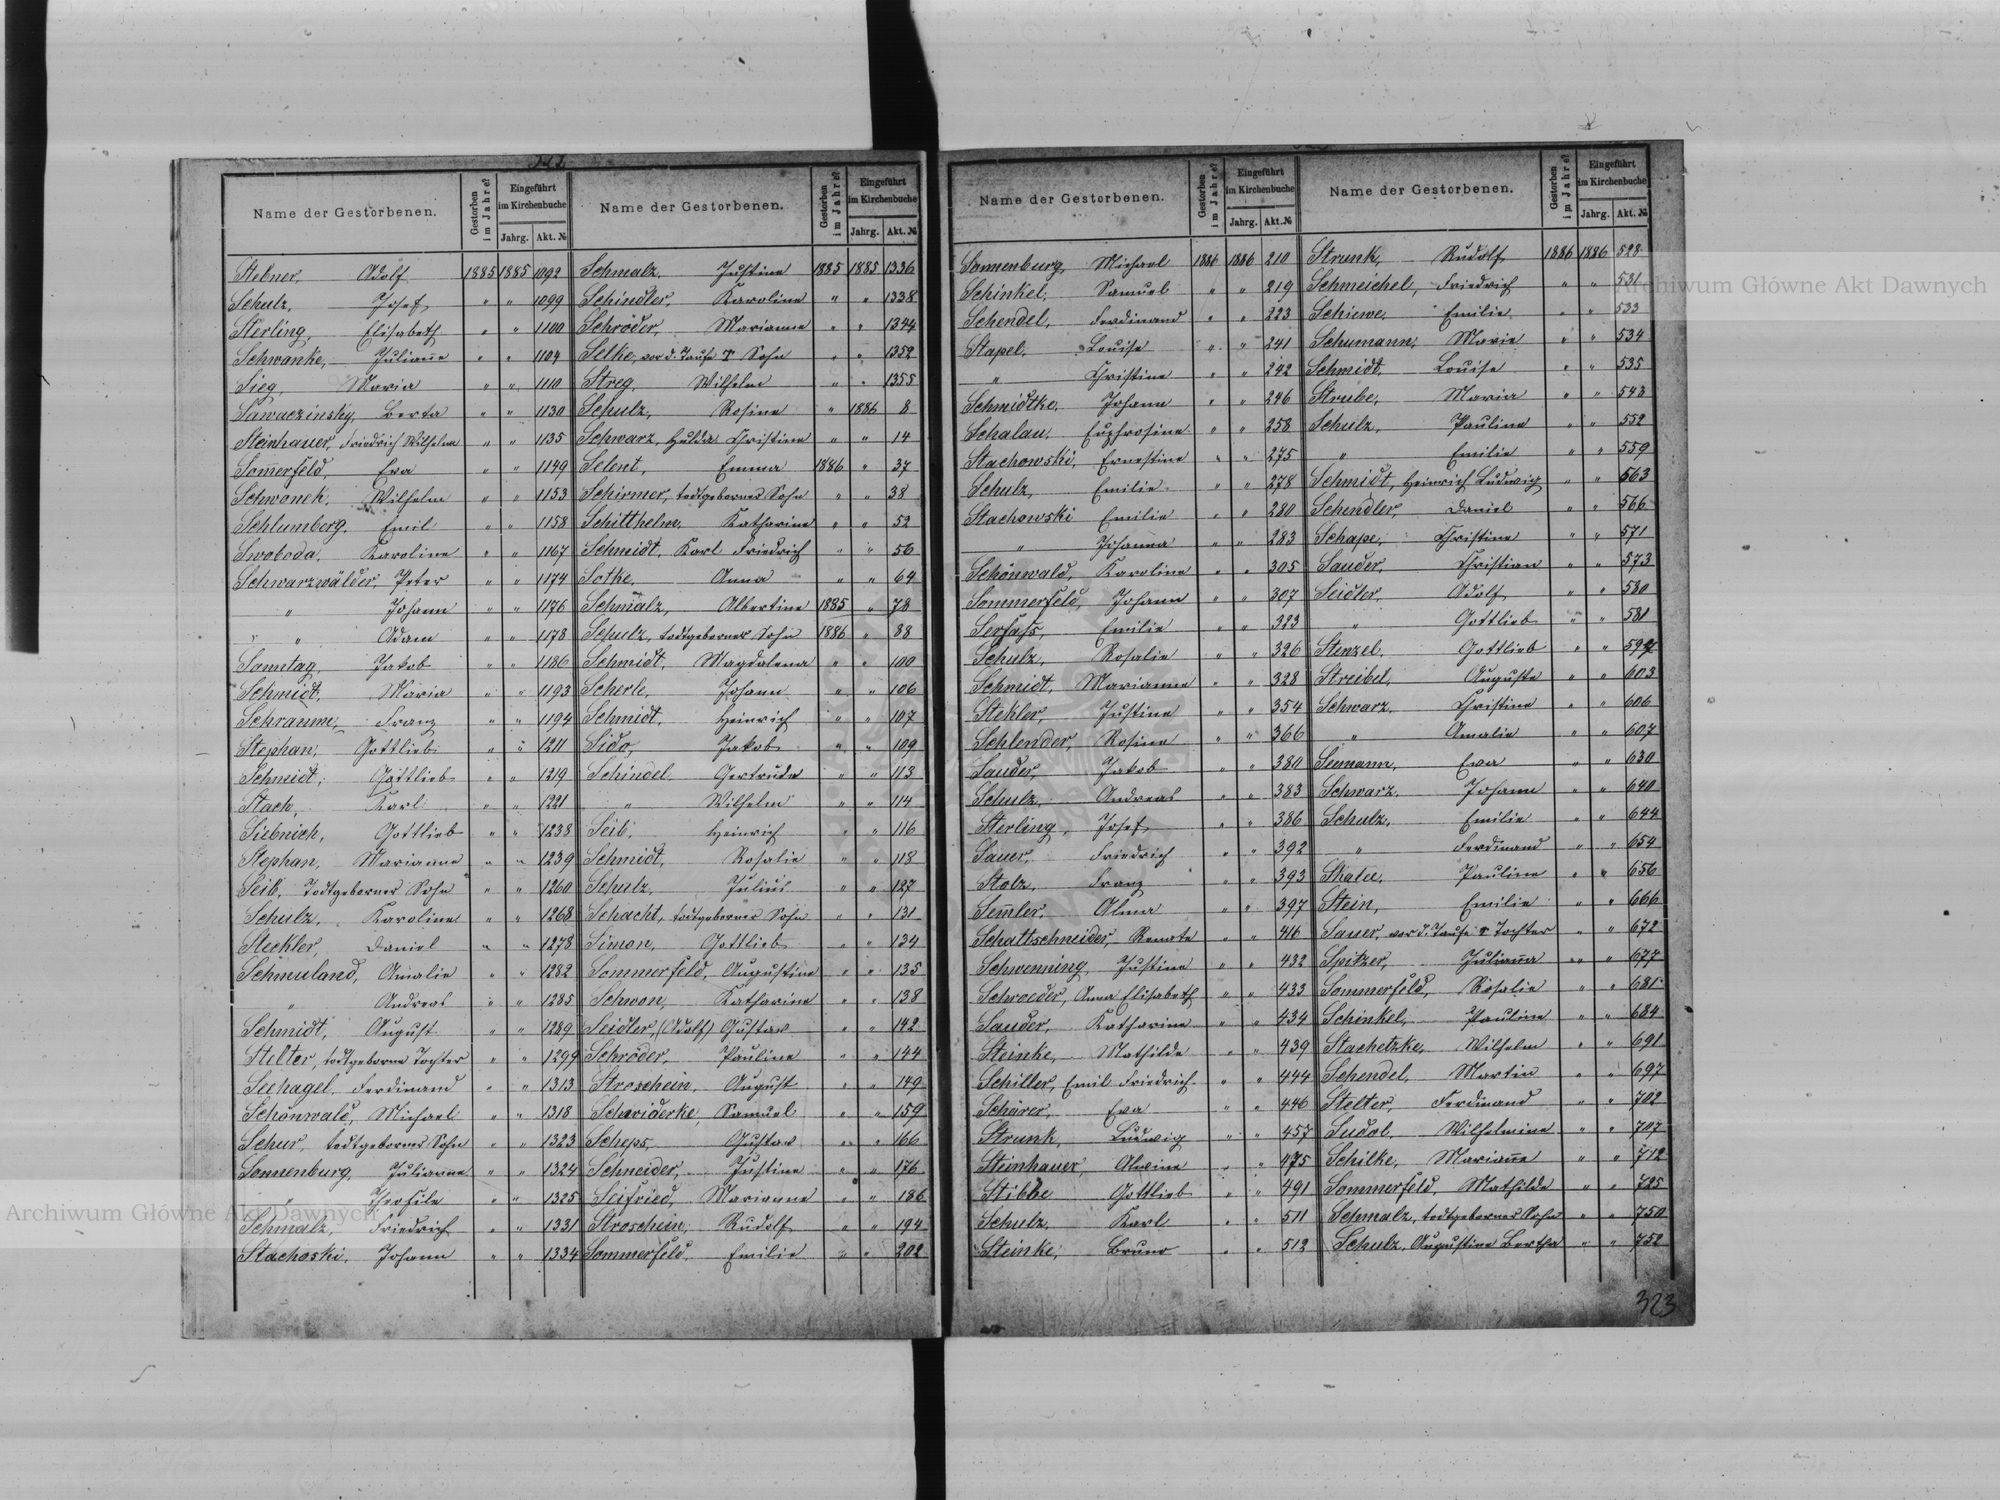 322
Name der Gestorbenen. Gestorben im Jahre? Eingeführt im Kirchenbuche Jahrg. Akt. №
Stebner, Adolf 1885 1885 1092
Schulz, Josef " " 1099
Sterling, Elisabeth " " 1100
Schwanke, Julianne " " 1104
Sieg, Maria " " 1110
Sawaczinsky, Berta " " 1130
Steinhauer, Friedrich Wilhelm " " 1135
Somerfeld, Ewa " " 1149
Schwonek, Wilhelm " " 1153
Schlumberg, Emil " " 1158
Swoboda, Karoline " " 1167
Schwarzwälder, Peter " " 1174
" Johann " " 1176
" Adam " " 1178
Sonntag, Jakob " " 1186
Schmidt, Maria " " 1193
Schramm, Franz " " 1194
Stephan, Gottlieb " " 1211
Schmidt, Gottlieb " " 1219
Stach, Karl " " 1221
Siebnich, Gottlieb " " 1238
Stephan, Marianne " " 1239
Seib, Todtgeborner Sohn " " 1260
Schulz, Karoline " " 1268
Steckler, Daniel " " 1278
Schmuland, Amalie " " 1282
" Andreas " " 1285
Schmidt, August " " 1289
Stelter, todtgeborne Tochter " " 1299
Seehagel, Ferdinand " " 1313
Schönwald, Michael " " 1318
Schur, todtgeborner Sohn " " 1323
Sonnenburg, Julianne " " 1324
" " " 1325
Schmalz, Friedrich " " 1331
Stachoski, Johann " " 1334
Name der Gestorbenen. Gestorben im Jahre? Eingeführt im Kirchenbuche Jahrg. Akt. №
Schmalz, Justine 1885 1885 1336
Schindler, Karoline " " 1338
Schröder, Marianne " " 1344
Selke, vor d. Taufe † Sohn " " 1352
Streg, Wilhelm " " 1355
Schulz, Rosine " 1886 8
Schwarz, Hulda Christine " " 14
Selent, Emma 1886 " 37
Schirmer, todtgeborner Sohn " " 38
Schitthelm, Katharine " " 52
Schmidt, Karl Friedrich " " 56
Sotke, Anna " " 64
Schmalz, Albertine 1885 " 78
Schulz, todtgeborner Sohn 1886 " 88
Schmidt, Magdalena " " 100
Scherle, Johann " " 106
Schmidt, Heinrich " " 107
Sido, Jakob " " 109
Schindel Gertruda " " 113
" Wilhelm " " 114
Seib, Heinrich " " 116
Schmidt, Rosalie " " 118
Schulz, Julius " " 127
Schacht, todtgeborner Sohn " " 131
Simon, Gottlieb " " 134
Sommerfeld, Augustine " " 135
Schwon, Katharine " " 138
Seidler, (Adolf) Gustav " " 142
Schröder, Pauline " " 144
Stroschein, August " " 149
Schwiderke, Samuel " " 159
Scheps, Gustav " " 166
Schneider, Justine " " 176
Seifried, Marianne " " 186
Stroschein, Rudolf " " 194
Sommerfeld, Emilie " " 202
Name der Gestorbenen. Gestorben im Jahre? Eingeführt im Kirchenbuche Jahrg. Akt. №
Sonnenburg, Michael 1886 1886 210
Schinkel, Samuel " " 219
Schendel, Ferdinand " " 223
Stapel, Louise " " 241
" Christine " " 242
Schmidtke, Johann " " 246
Schalau, Euphrosine " " 258
Stachowski, Ernestine " " 275
Schulz, Emilie " " 278
Stachowski Emilie " " 280
" Johanna " " 283
Schönwald, Karoline " " 305
Sommerfeld, Johann " " 307
Serfass, Emilie " " 323
Schulz, Rosalie " " 326
Schmidt, Marianne " " 328
Stekler, Justine " " 354
Schlender, Rosine " " 366
Sauder, Jakob " " 380
Schulz, Andreas " " 383
Sterling, Josef " " 386
Sauer, Friedrich " " 392
Stolz, Franz " " 393
Semler, Alma " " 397
Schattschneider, Renate " " 416
Schwenning, Justine " " 432
Schroeder, Anna Elisabeth " " 433
Sauder, Katharine " " 434
Steinke, Mathilde " " 439
Schiller, Emil Friedrich " " 444
Schärer, Eva " " 446
Strunk, Ludwig " " 457
Steinhauer, Alwine " " 475
Stibbe Gottlieb " " 491
Schulz, Karl " " 511
Steinke, Bruno " " 512
Name der Gestorbenen. Gestorben im Jahre? Eingeführt im Kirchenbuche Jahrg. Akt. №
Strunk, Rudolf 1886 1886 528
Schmeichel, Friedrich " " 531
Schiewe, Emilie " " 533
Schumann, Marie " " 534
Schmidt, Louise " " 535
Strube, Maria " " 543
Schulz, Pauline " " 552
" Emilie " " 559
Schmidt, Heinrich Ludwig " " 563
Schendler, Daniel " " 566
Schape, Christine " " 571
Sauder, Christian " " 573
Seidler, Adolf " " 580
" Gottlieb " " 581
Stenzel, Gottlieb " "
Streibel, Auguste " " 603
Schwarz, Christine " " 606
" Amalie " " 607
Seemann, Ewa " " 630
Schwarz, Johann " " 640
Schulz, Emilie " " 644
" Ferdinand " " 654
Skalee, Pauline " " 656
Stein, Emilie " " 666
Sauer, vor d. Taufe † Tochter " " 672
Spitzer, Julianna " " 677
Sommerfeld, Rosalie " " 681
Schinkel, Pauline " " 684
Stachetzke, Wilhelm " " 691
Schendel, Martin " " 697
Stelter, Ferdinand " " 702
Sudol, Wilhelmine " " 707
Schilke, Marianne " " 712
Sommerfeld, Mathilde " " 725
Schmalz, todtgeborner Sohn " " 750
Schulz, Augustine Bertha " " 752
323
Archiwum Główne Akt Dawnych
Archiwum Główne Akt Dawnych